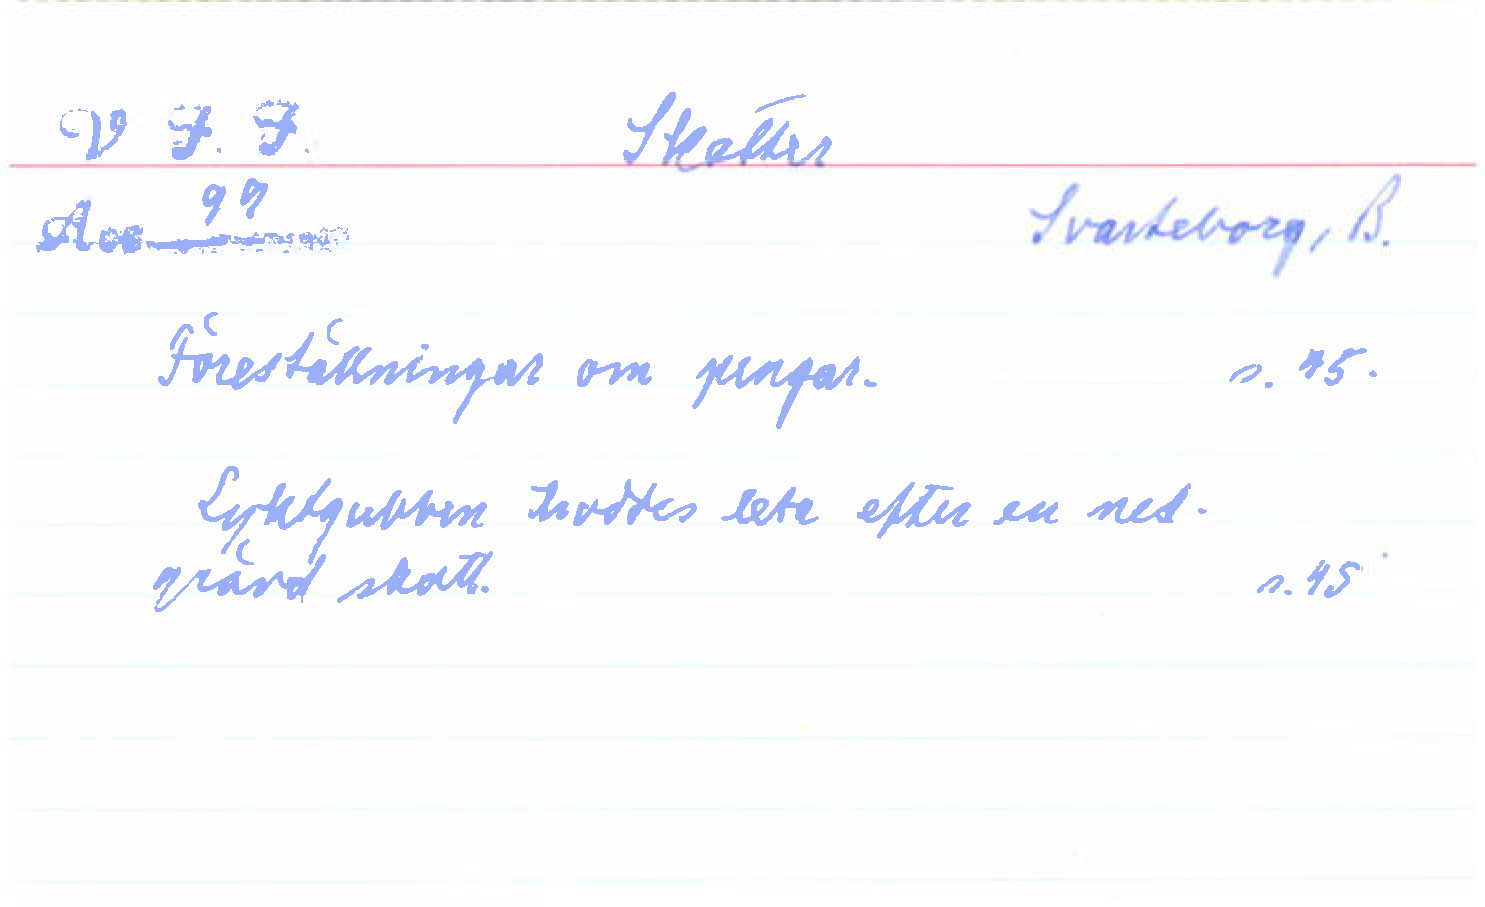 V. F. F. Skatter
Acc 99 Svarteborg, B.
Föreställningar om pengar. s. 45.
Lyktgubben troddes leta efter en ned-
grävd skatt. s. 45